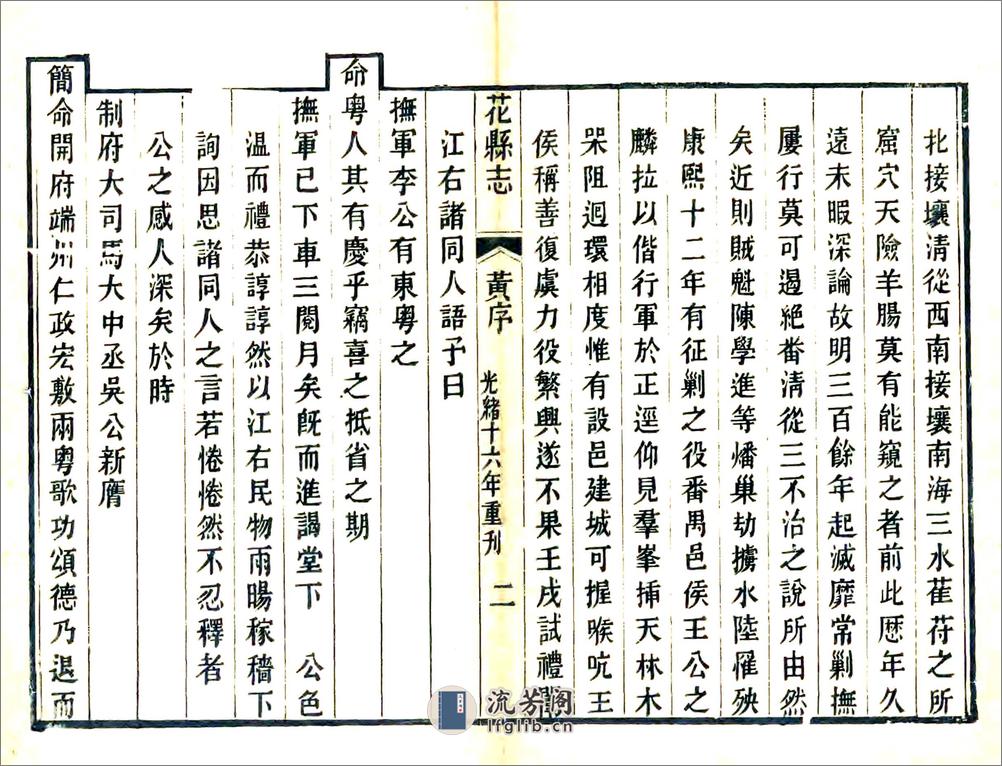 北接壤清從西南接壤南海三水萑苻之所
窟穴天險羊腸莫有能窺之者前此歷年久
遠未暇深論故明三百餘年起滅靡常剿撫
屢行莫可遏絕番清從三不治之說所由然
矣近則賊魁陳學進等燔巢劫擄水陸罹殃
康熙十二年有征剿之役番禺邑侯王公之
麟拉以偕行軍於正逕仰見羣峯揷天林木
罙阻迴環相度惟有設邑建城可握喉吭王
侯稱善復虞力役繁興遂不果壬戌試禮闈
花縣志 黃序 光緒十六年重刊 二
江右諸同人語予曰
撫軍李公有東粤之
命粤人其有慶乎竊喜之抵省之期
撫軍已下車三閱月矣旣而進謁堂下 公色
温而禮恭諄諄然以江右民物雨暘稼穡下
詢因思諸同人之言若惓惓然不忍釋者
公之感人深矣於時
制府大司馬大中丞吳公新膺
簡命開府端州仁政宏敷兩粤歌功頌德乃退而
流芳閣
lfglib.cn